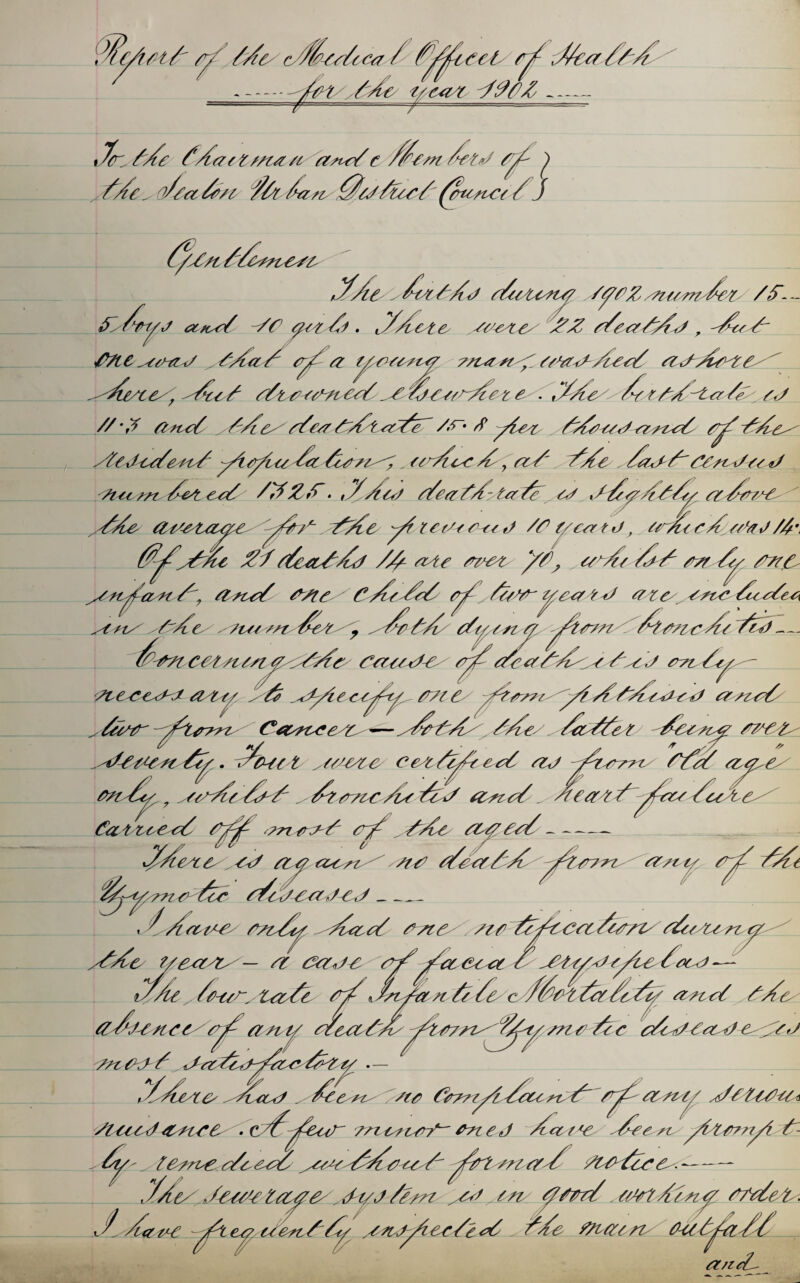 Report of the Medical Officer of Health
for the year 1902
To the Chairman and Members of }
the Seaton Urban District Council }
Gentlemen
The births during 1902 number 15 --
5 boys and 10 girls. There were 22 deaths, but
one was that of a young man, washed ashore
here, but drowned elsewhere. The birth-rate is
11.3 and the death rate 15.8 per thousand of the
resident population, which, at the last census
numbered 1325. This death-rate is slightly above
the average for the previous 10 years, which was 14.
Of the 21 deaths 14 are over 70, whilst only one
infant, and one child of two years are included
in the number, both dying from bronchitis —
Concerning the cause of death it is only
necessary to specify one from phthisis and
two from Cancer — both the latter being over
seventy. Four were certified as from "old age"
only, whilst bronchitis and heart failure
carried off most of the aged ——
There is again no death from any of the
Zymotic diseases ——
I have only had one notification during
the year – a case of facial erysipelas —
The low rate of Infantile Mortality and the
absence of any death from Zymotic disease is
most satisfactory. —
There has been no Complaint of any serious
nuisance. A few minor ones have been prompt-
ly remedied without formal notice. ——
The Sewerage System is in good working order.
I have frequently inspected the main outfall
and